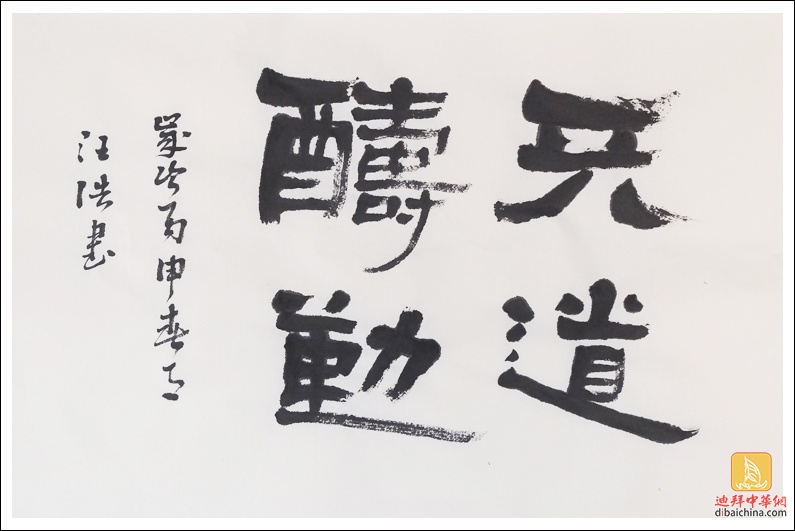 天道
醻勤
歲次丙申春月
汪書
迪拜中華網
dibaichina.com